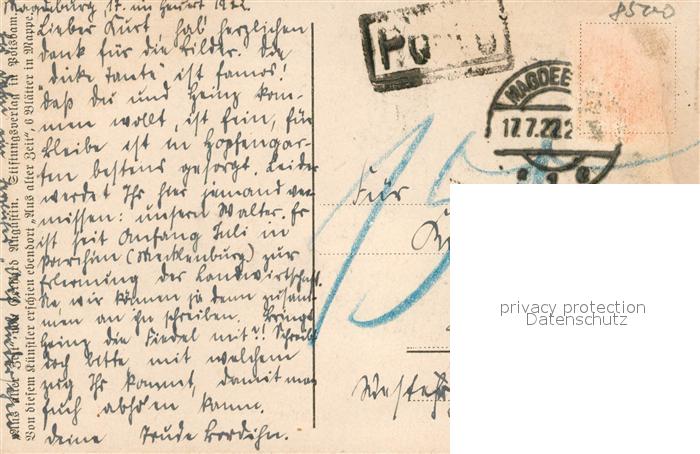 Magdeburg, 17. im Heuert 1922.
Lieber Kurt, hab' herzlichen
Dank für die Bilder. Die
"Dicke Tante" ist famos!
Daß du und Heinz kom-
men wollt, ist fein, für
bleibe ist in Hopfengar-
ten bestens gesorgt. Leider
werdet Ihr hier jemand ver-
missen: unsern Walter. Er
ist seit Anfang Juli in
Parchim (Mecklenburg) zur
Erlernung der Landwirtschaft.
Na wir können ja dann zusam-
men an ihn schreiben. Bringt
Heinz die Fiedel mit?! Schreib
doch bitte mit welchem
Zug Ihr kommt, damit man
Euch abholen kann.
Deine Trude
Stiftungsverlag in Potsdam.
Von diesem Künstler erschien ebendort „Aus alter Zeit“, 6 Blätter in Mappe.
Porto
8500
MAGDEB
17.7.22.2
15
Für
privacy protection
Datenschutz